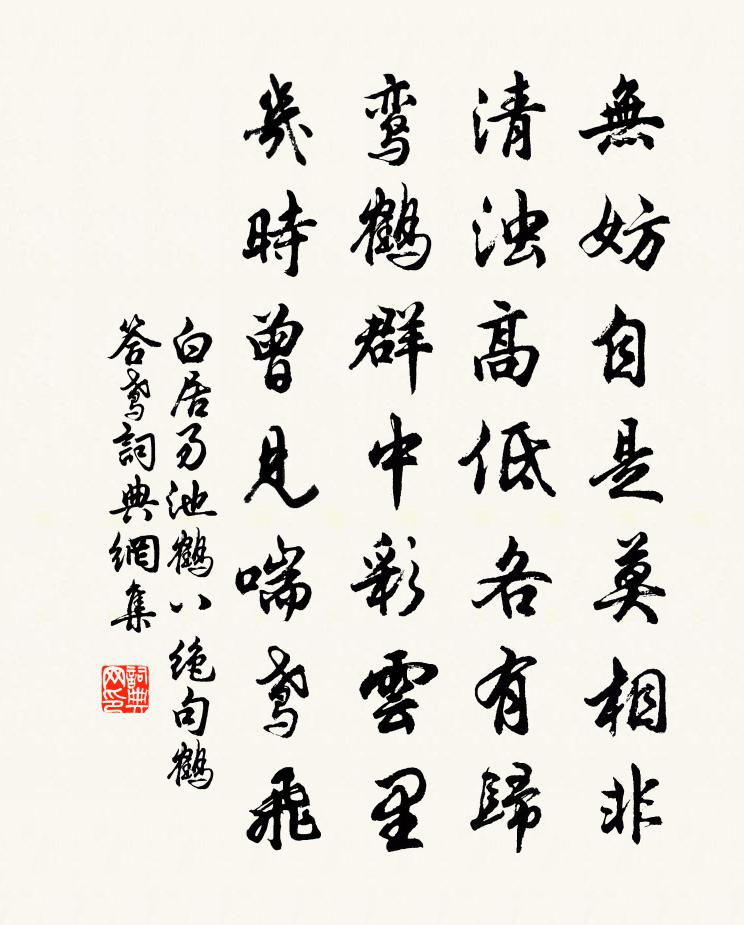 無妨自是莫相非
清浊高低各有歸
鸾鶴群中彩雲里
幾時曾見喘鸢飛
白居易池鶴八绝句鶴
答鸢詞典網集
詞典网印